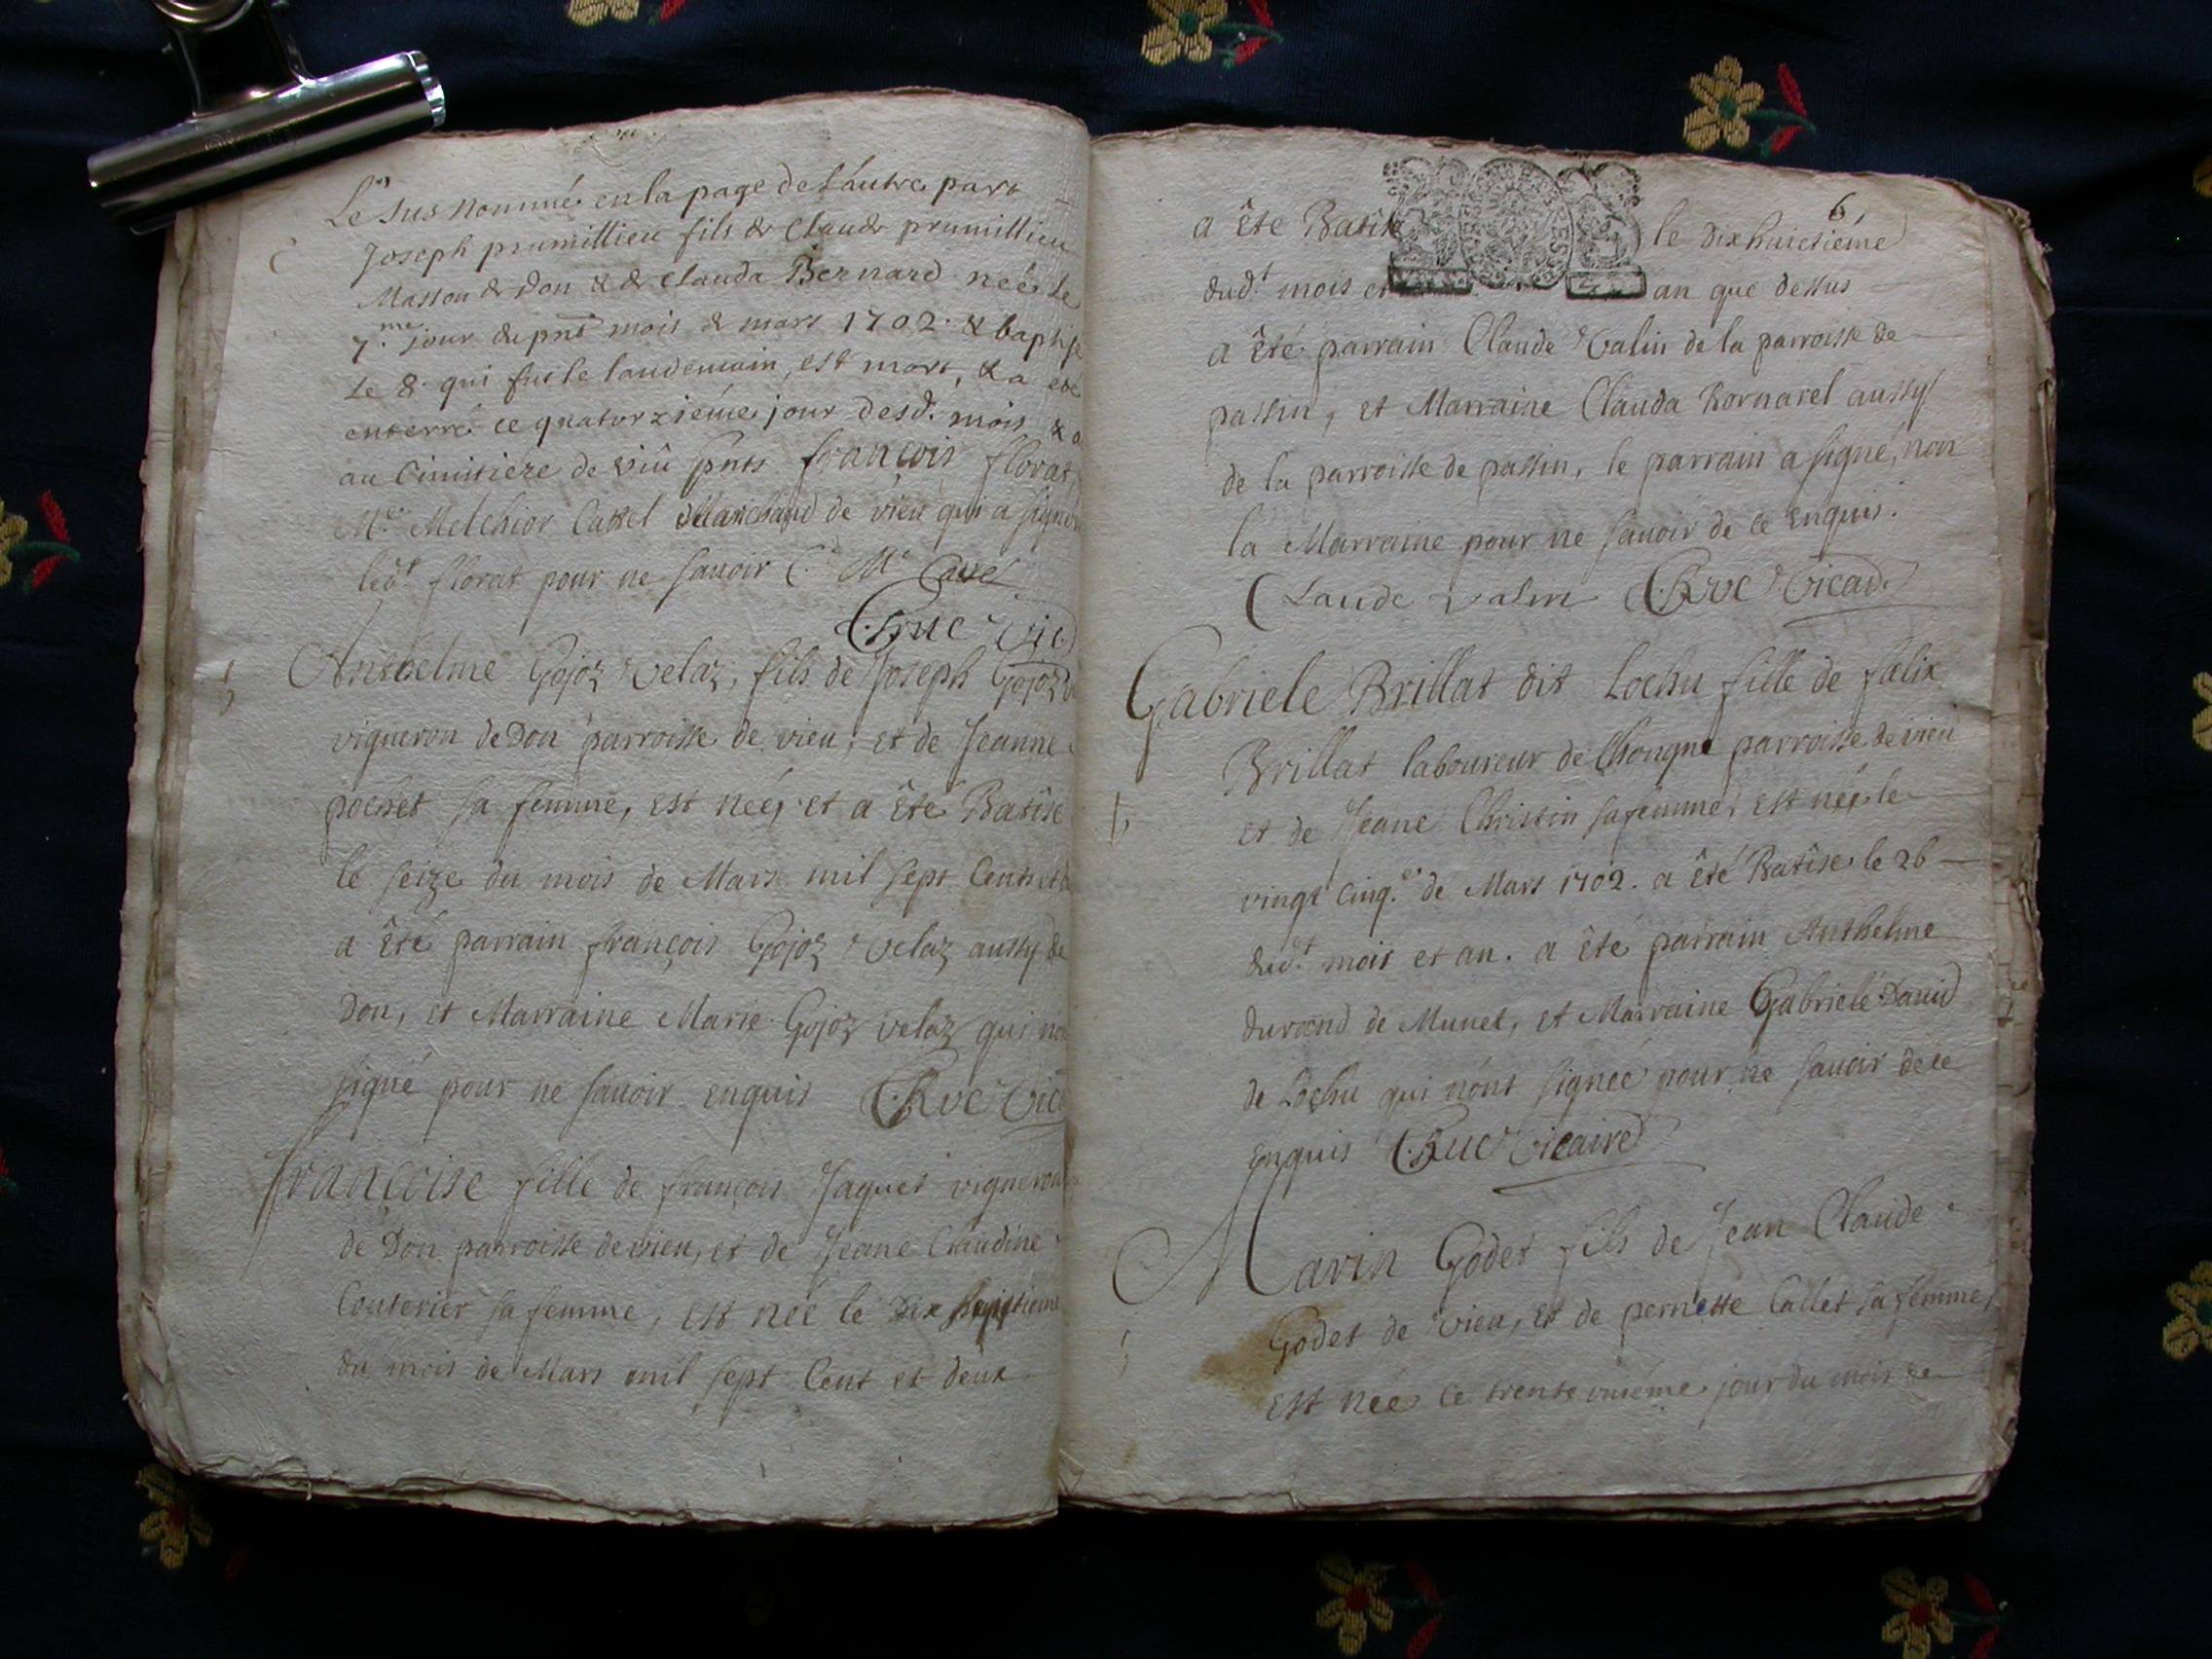 Le sus nommé en la page de l'autre part
Joseph prumillieu fils de Claude prumillieu
Masson de Don & de Clauda Bernard neé le
7.me jour du pnt mois de mars 1702. & baptisé
le 8. qui fut le landemain, est mort, & a eté
enterré ce quatorziéme jour desd. mois &
au Cimitiére de viû pnts françois florat
M.e Melchior Cassel Marchand de vieu qui a signé
led.t florat pour ne sauoir
Cruc vic
Antelme Gojoz Velaz, fils de Joseph Gojoz
vigneron de Don parroisse de vieu, et de Jeanne
pochet sa femme, est neé, et a êté Batîse
le seize du mois de Mars mil sept Cents et
a êté parrain françois Gojoz Velaz aussy de
Don, et Marraine Marie Gojoz Velaz qui
signé pour ne sauoir enquis Cruc Vic
françoise fille de françois Jaquet vigneron
de Don parroisse de vieu, et de Jeane Claudine
Couterier sa femme, est neé le Dix
du mois de Mars mil sept Cent et deux
6,
a ête Batîse le Dixhuictiéme
dud.t mois et an que dessus
a êté parrain Claude Valin de la parroisse de
passin, et Marraine Clauda Bornarel aussy
de la parroisse de passin, le parrain a signé, non
la Marraine pour ne sauoir de ce enquis.
Claude valin Cruc Vicad.
Gabriele Brillat dit Lochu fille de fœlix
Brillat laboureur de Chongne parroisse de vieu
et de Jeane Christin sa femme, est neé le
vingt Cinq.e de Mars 1702. a êté Batîse le 26
dud.t mois et an. a êté parrain Anthelme
durand de Munet, et Marraine Gabriele Dauid
de Lochu qui n'ont signeé pour ne sauoir de ce
enquis Cruc Vicaire
Marin Godet fils de Jean Claude
Godet de Vieu, et de pernette Callet sa femme,
est neé le trente uniéme jour du mois de